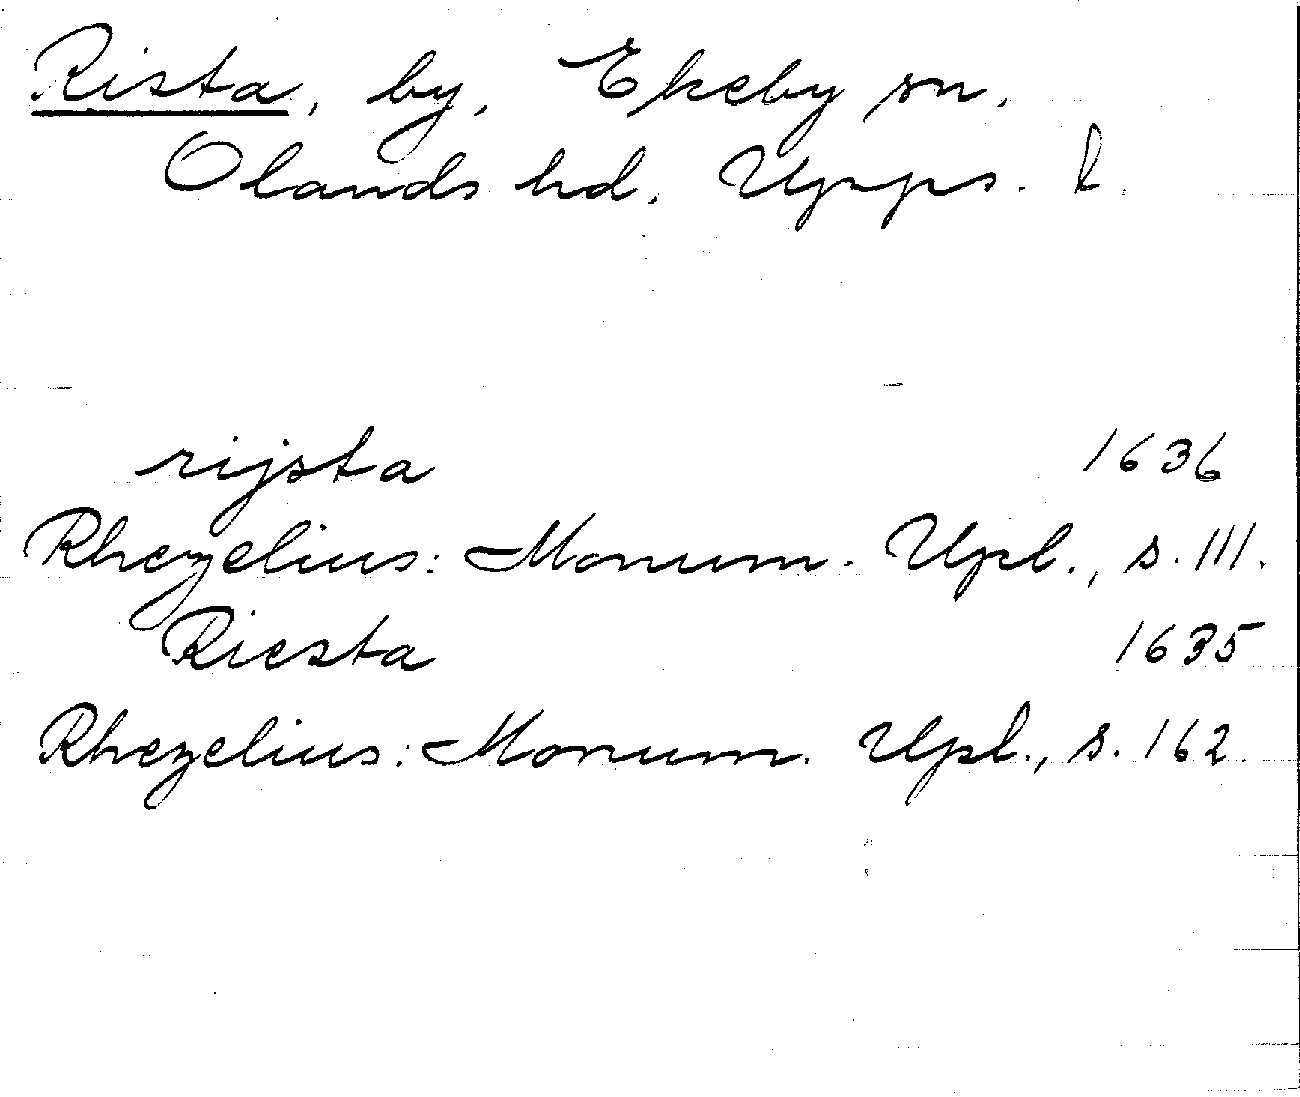 Rista, by, Ekeby sn,
Olands hd, Upps. l.
rijsta 1636
Rhezelius: Monum. Upl., s. 111.
Riesta 1635
Rhezelius: Monum. Upl., s. 162.